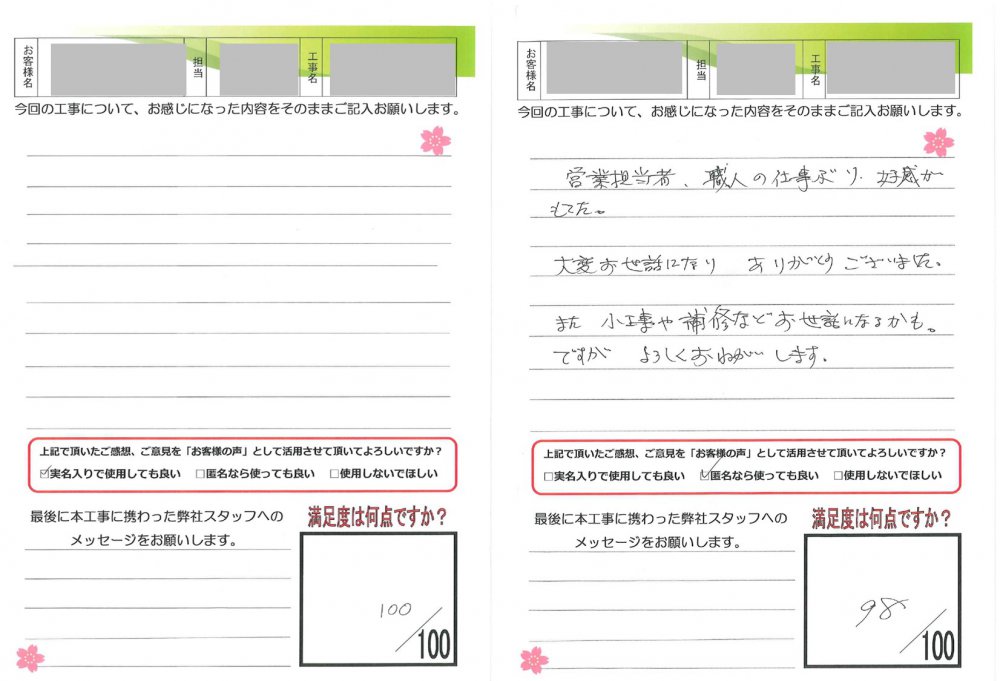 お客様名
担当
工事名
今回の工事について、お感じになった内容をそのままご記入お願いします。
上記で頂いたご感想、ご意見を「お客様の声」として活用させて頂いてよろしいですか？
☑実名入りで使用しても良い □匿名なら使っても良い □使用しないでほしい
最後に本工事に携わった弊社スタッフへの
メッセージをお願いします。
満足度は何点ですか？
100/100
お客様名
担当
工事名
今回の工事について、お感じになった内容をそのままご記入お願いします。
営業担当者、職人の仕事ぶり、好感が
もてた。
大変お世話になり ありがとうございました。
また 小工事や補修などお世話になるかも。
ですが よろしくおねがいします。
上記で頂いたご感想、ご意見を「お客様の声」として活用させて頂いてよろしいですか？
□実名入りで使用しても良い ☑匿名なら使っても良い □使用しないでほしい
最後に本工事に携わった弊社スタッフへの
メッセージをお願いします。
満足度は何点ですか？
98/100